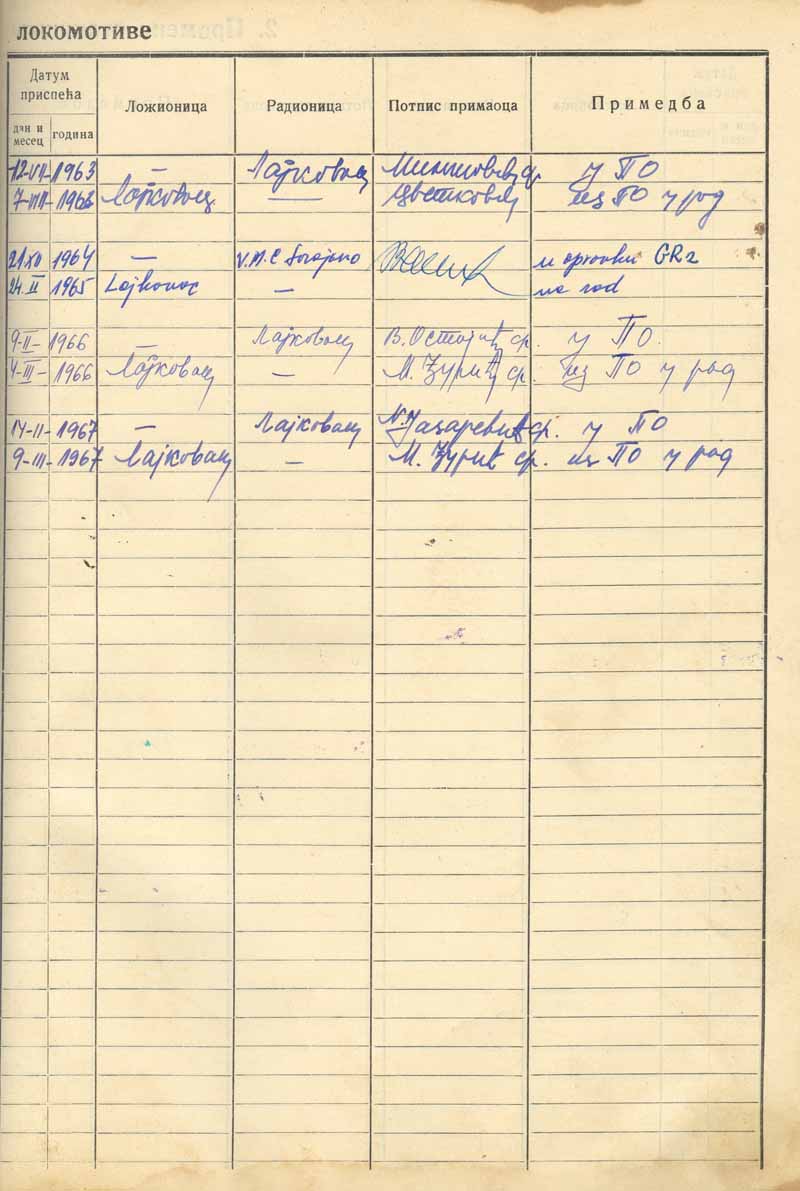 локомотиве
Датум приспећа
дан и месец
година
Ложионица
Радионица
Потпис примаоца
Примедба
12-VII- 1963 — Лајковац у ПО
7-VIII- 1963 Лајковац — из ПО у рад
21.XII 1964 —
24.II 1965 Lajkovac — na rad
9-II- 1966 — Лајковац В. Остојић ср. у ПО.
4-III- 1966 Лајковац — М. Зурић ср. из ПО у рад
14-II- 1967 — Лајковац Лазаревић ср. у ПО
9-III- 1967 Лајковац — М. Зурић ср. из ПО у рад